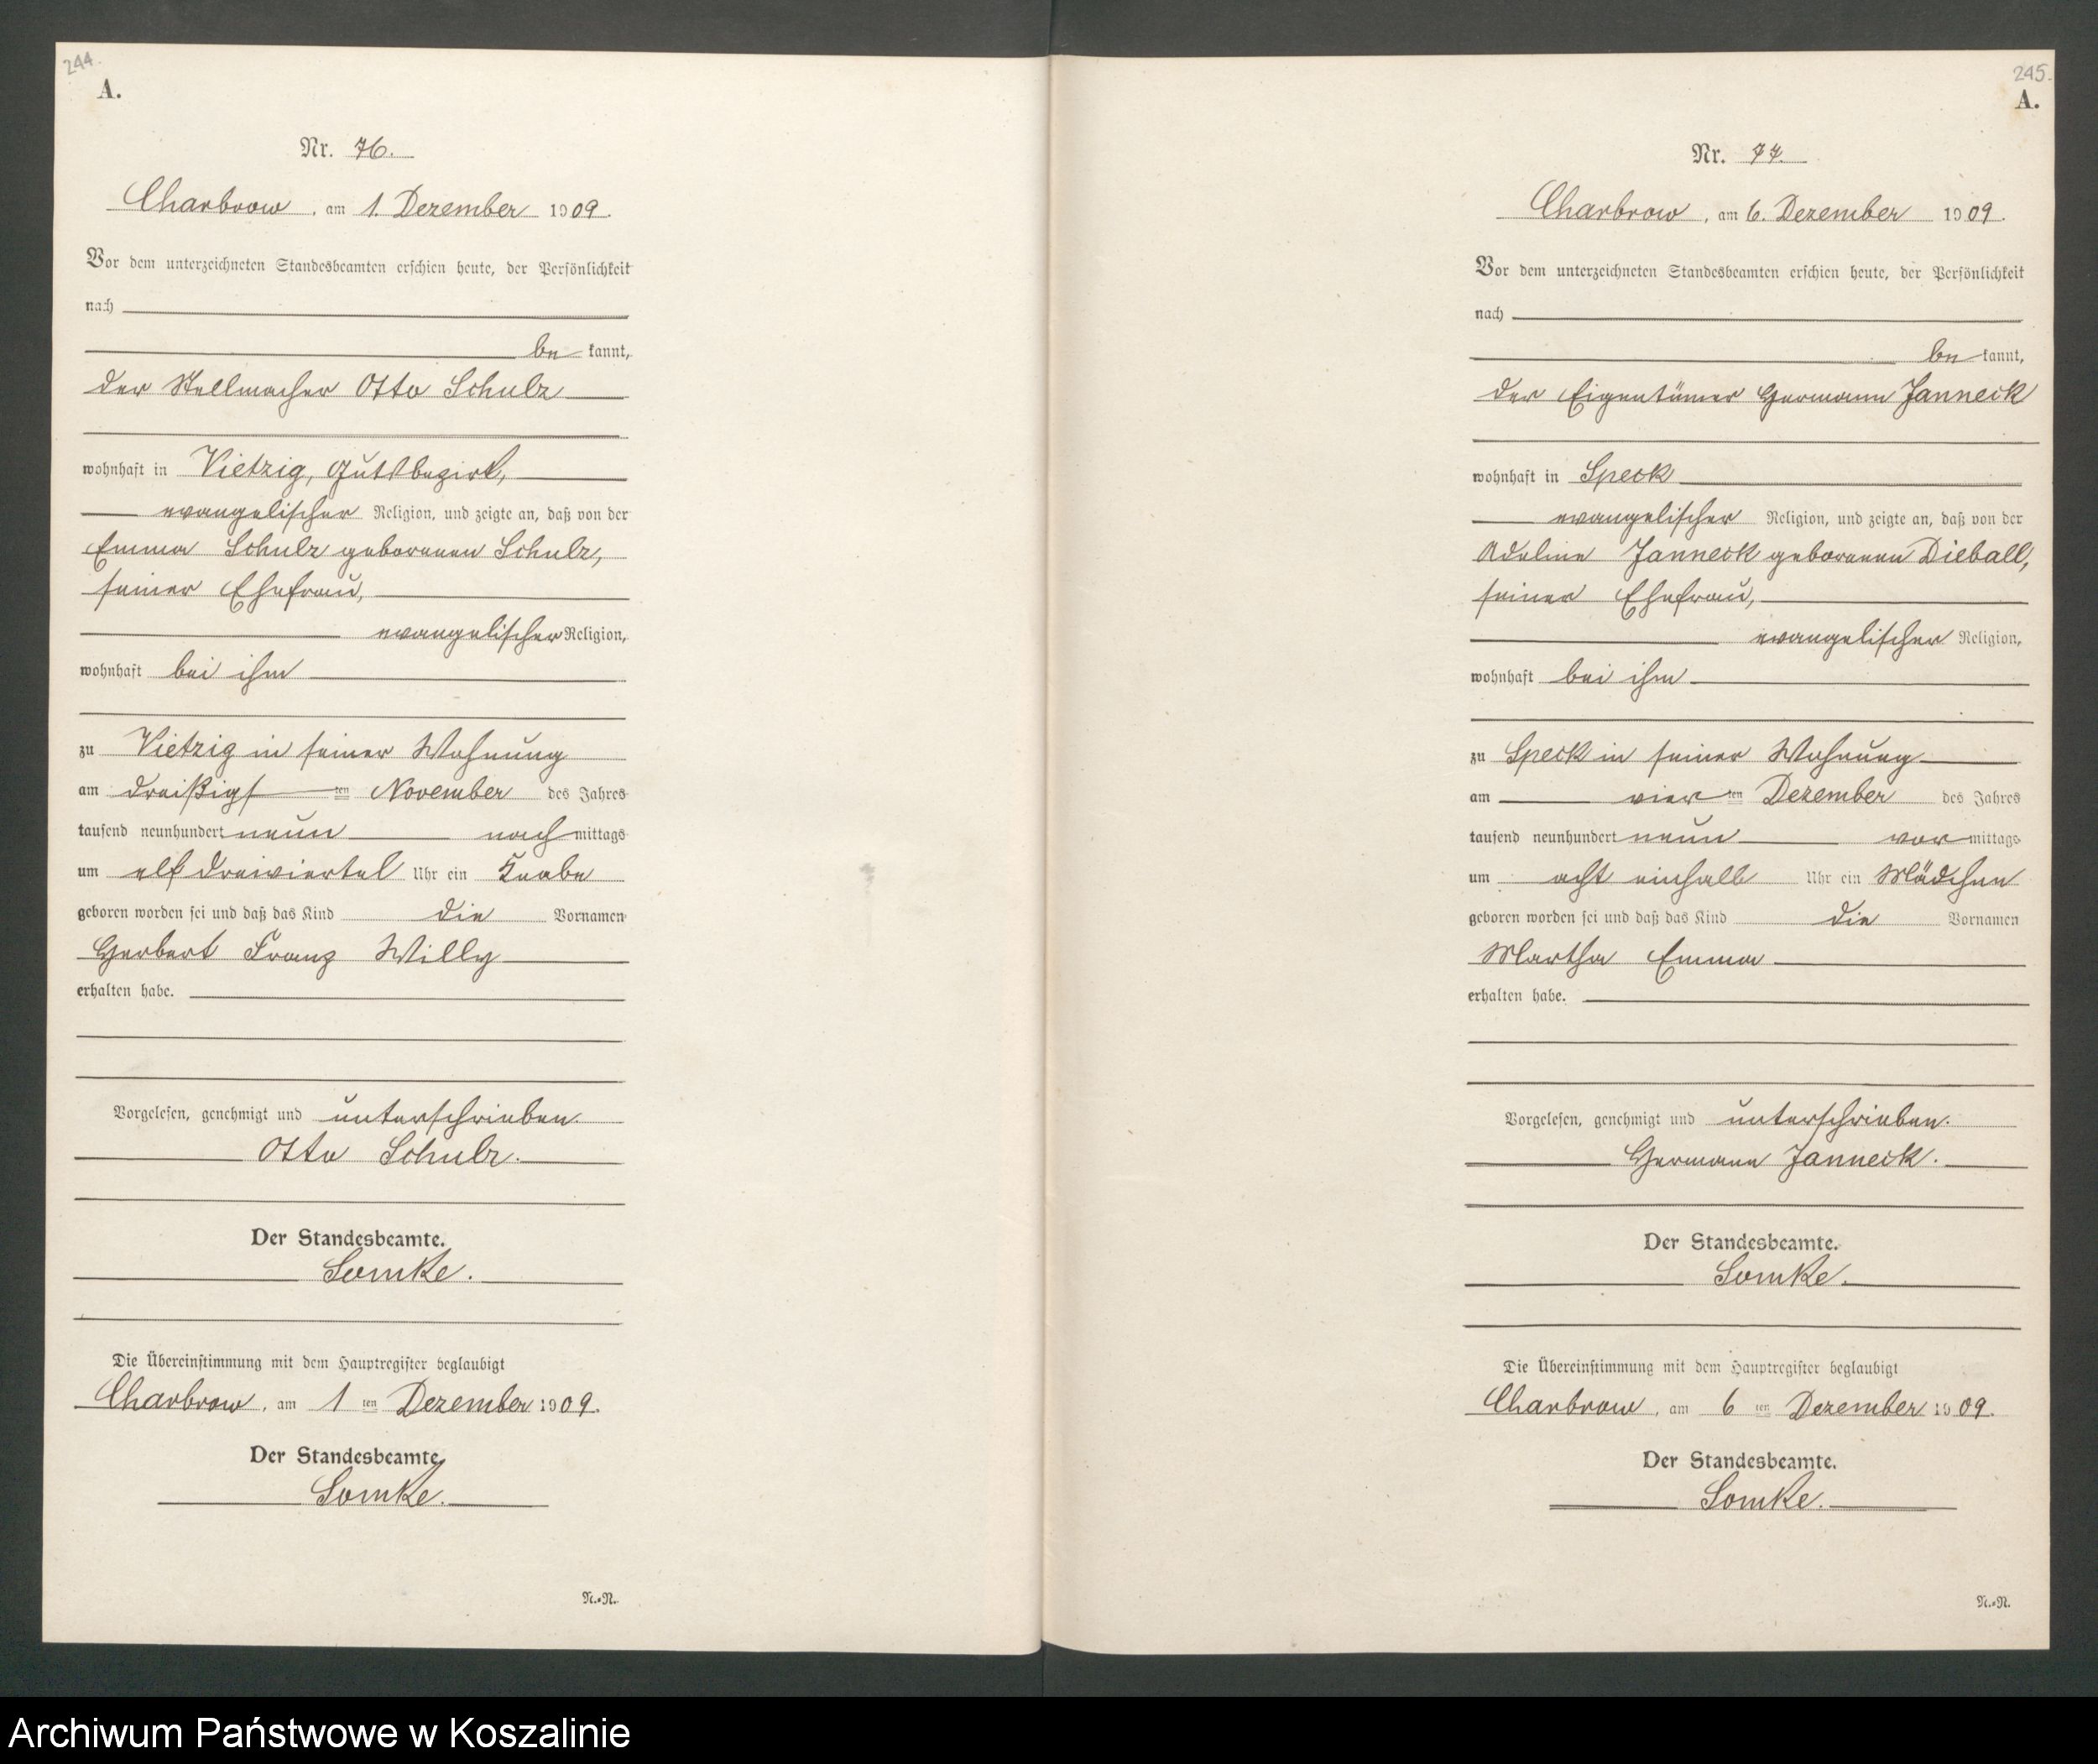 244.
A.
Nr. 76.
Charbrow, am 1. Dezember 1909.
Vor dem unterzeichneten Standesbeamten erschien heute, der Persönlichkeit
nach
be kannt,
der Stellmacher Otto Schulz
wohnhaft in Vietzig, Gutsbezirk,
evangelischer Religion, und zeigte an, daß von der
Emma Schulz geborenen Schulz,
seiner Ehefrau,
evangelischer Religion,
wohnhaft bei ihm
zu Vietzig in seiner Wohnung
am dreißigsten November des Jahres
tausend neunhundert neun nachmittags
um elf dreiviertel Uhr ein Knabe
geboren worden sei und daß das Kind die Vornamen
Herbert Franz Willy
erhalten habe.
Vorgelesen, genehmigt und unterschrieben.
Otto Schulz.
Der Standesbeamte.
Somke.
Die Übereinstimmung mit dem Hauptregister beglaubigt
Charbrow, am 1ten Dezember 1909.
Der Standesbeamte.
Somke.
N.=N.
245.
A.
Nr. 77.
Charbrow, am 6. Dezember 1909.
Vor dem unterzeichneten Standesbeamten erschien heute, der Persönlichkeit
nach
be kannt,
der Eigentümer Hermann Janneck
wohnhaft in Speck
evangelischer Religion, und zeigte an, daß von der
Adeline Janneck geborenen Dieball,
seiner Ehefrau,
evangelischer Religion,
wohnhaft bei ihm
zu Speck in seiner Wohnung
am vierten Dezember des Jahres
tausend neunhundert neun vormittags
um acht einhalb Uhr ein Mädchen
geboren worden sei und daß das Kind die Vornamen
Martha Emma
erhalten habe.
Vorgelesen, genehmigt und unterschrieben.
Hermann Janneck.
Der Standesbeamte.
Somke.
Die Übereinstimmung mit dem Hauptregister beglaubigt
Charbrow, am 6ten Dezember 1909.
Der Standesbeamte.
Somke.
N.=N.
Archiwum Państwowe w Koszalinie